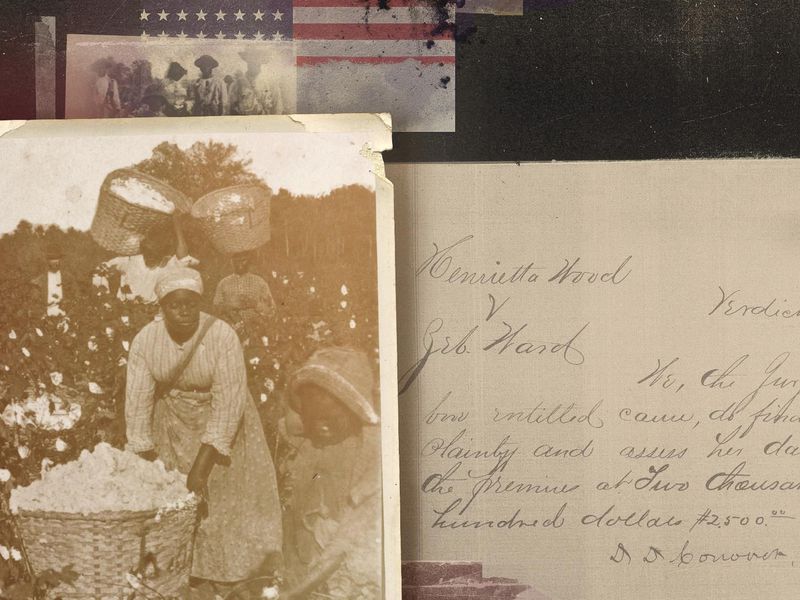 Henrietta Wood
V Verdic
Geb. Ward
We, the Jur
bove entitled cause, do find
Plaintiff and assess her da
the premises at Two thousan
hundred dollars $2,500.00
D D Conover,